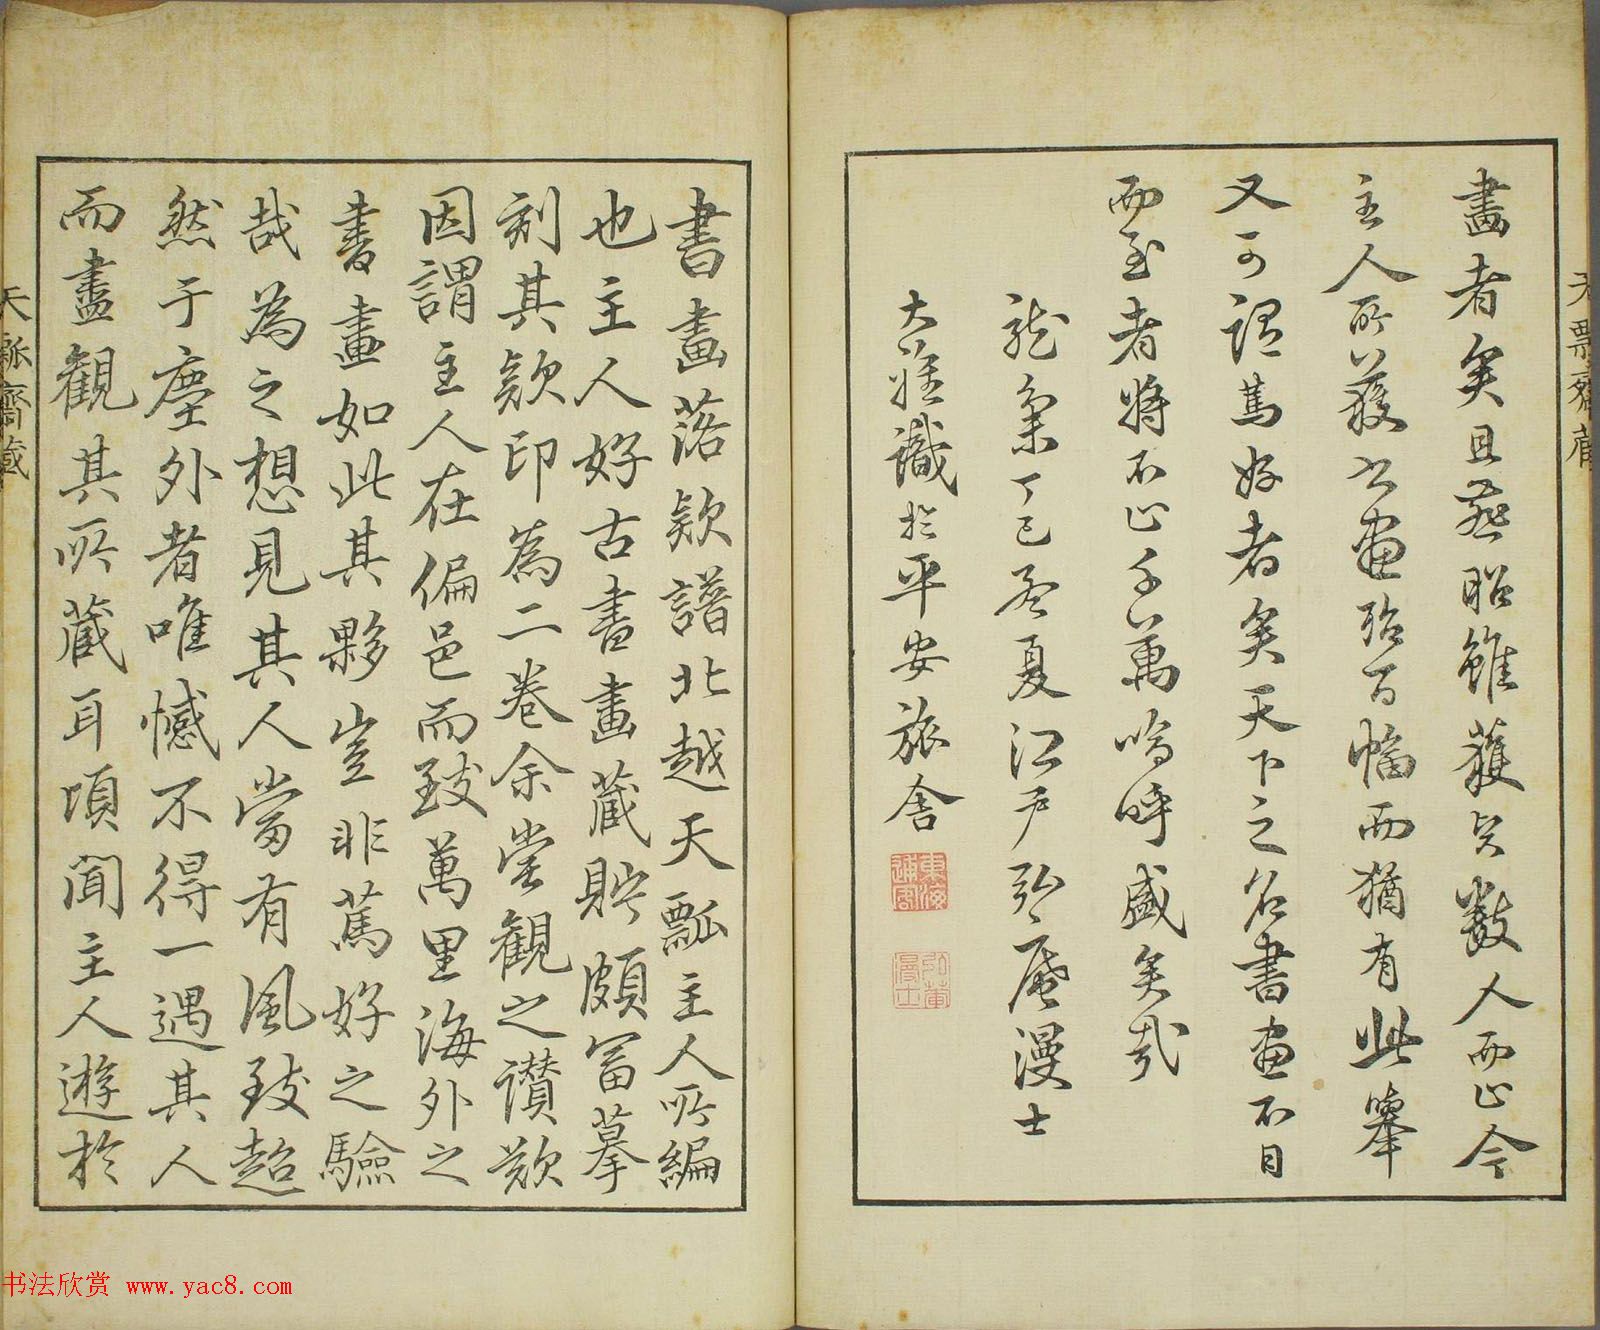 天瓢齋藏
畫者矣且燕昭雖獲只數人而止今
主人所獲书畫殆百幅而猶有此舉
又可謂篤好者矣天下之名書畫不日
而至者将不止千萬嗚呼盛矣哉
龍集丁巳孟夏江戸弘庵漫士
大識於平安旅舍
東海
弘葊漫士
書畫落欵譜北越天瓢主人所編
也主人好古書畫藏貯頗冨摹
刻其欵印為二卷余嘗觀之讃歎
因謂主人在偏邑而致萬里海外之
書畫如此其夥豈非篤好之驗
哉為之想見其人當有風致超
然于塵外者唯憾不得一遇其人
而盡觀其所藏耳頃聞主人遊於
天瓢齋藏
书法欣赏 www.yac8.com